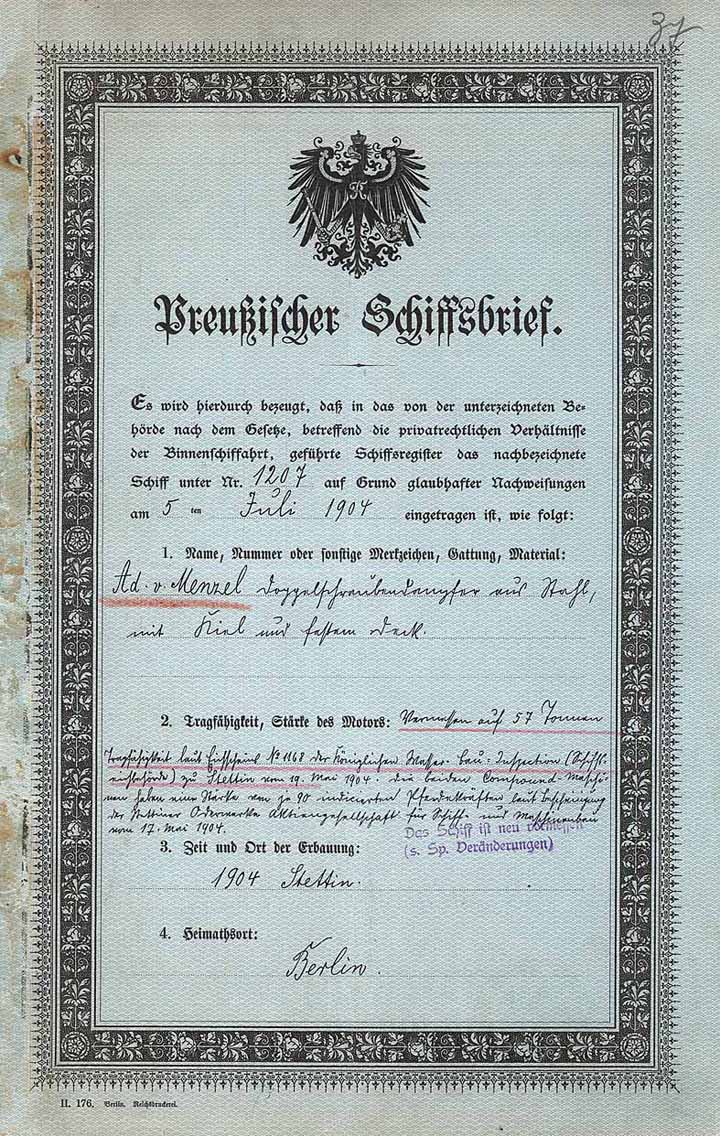 37
Preußischer Schiffsbrief.
Es wird hierdurch bezeugt, daß in das von der unterzeichneten Be-
hörde nach dem Gesetze, betreffend die privatrechtlichen Verhältnisse
der Binnenschiffahrt, geführte Schiffsregister das nachbezeichnete
Schiff unter Nr. 1207 auf Grund glaubhafter Nachweisungen
am 5 ten Juli 1904 eingetragen ist, wie folgt:
1. Name, Nummer oder sonstige Merkzeichen, Gattung, Material:
Ad. v. Menzel Doppelschraubendampfer aus Stahl,
mit Kiel und festem Deck.
2. Tragfähigkeit, Stärke des Motors: Vermessen auf 57 Tonnen
Tragfähigkeit laut Eichscheins No 1168 der Königlichen Wasser-Bau-Inspection (Schiffs-
eichbehörde) zu Stettin vom 19. Mai 1904. Die beiden Compound-Maschi-
nen haben eine Stärke von je 90 indicirten Pferdekräften laut Bescheinigung
der Stettiner Oderwerke Aktiengesellschaft für Schiff- und Maschinenbau
vom 17. Mai 1904.
Das Schiff ist neu vermessen
(s. Sp. Veränderungen)
3. Zeit und Ort der Erbauung:
1904 Stettin.
4. Heimathsort:
Berlin.
II. 176. Berlin. Reichsdruckerei.